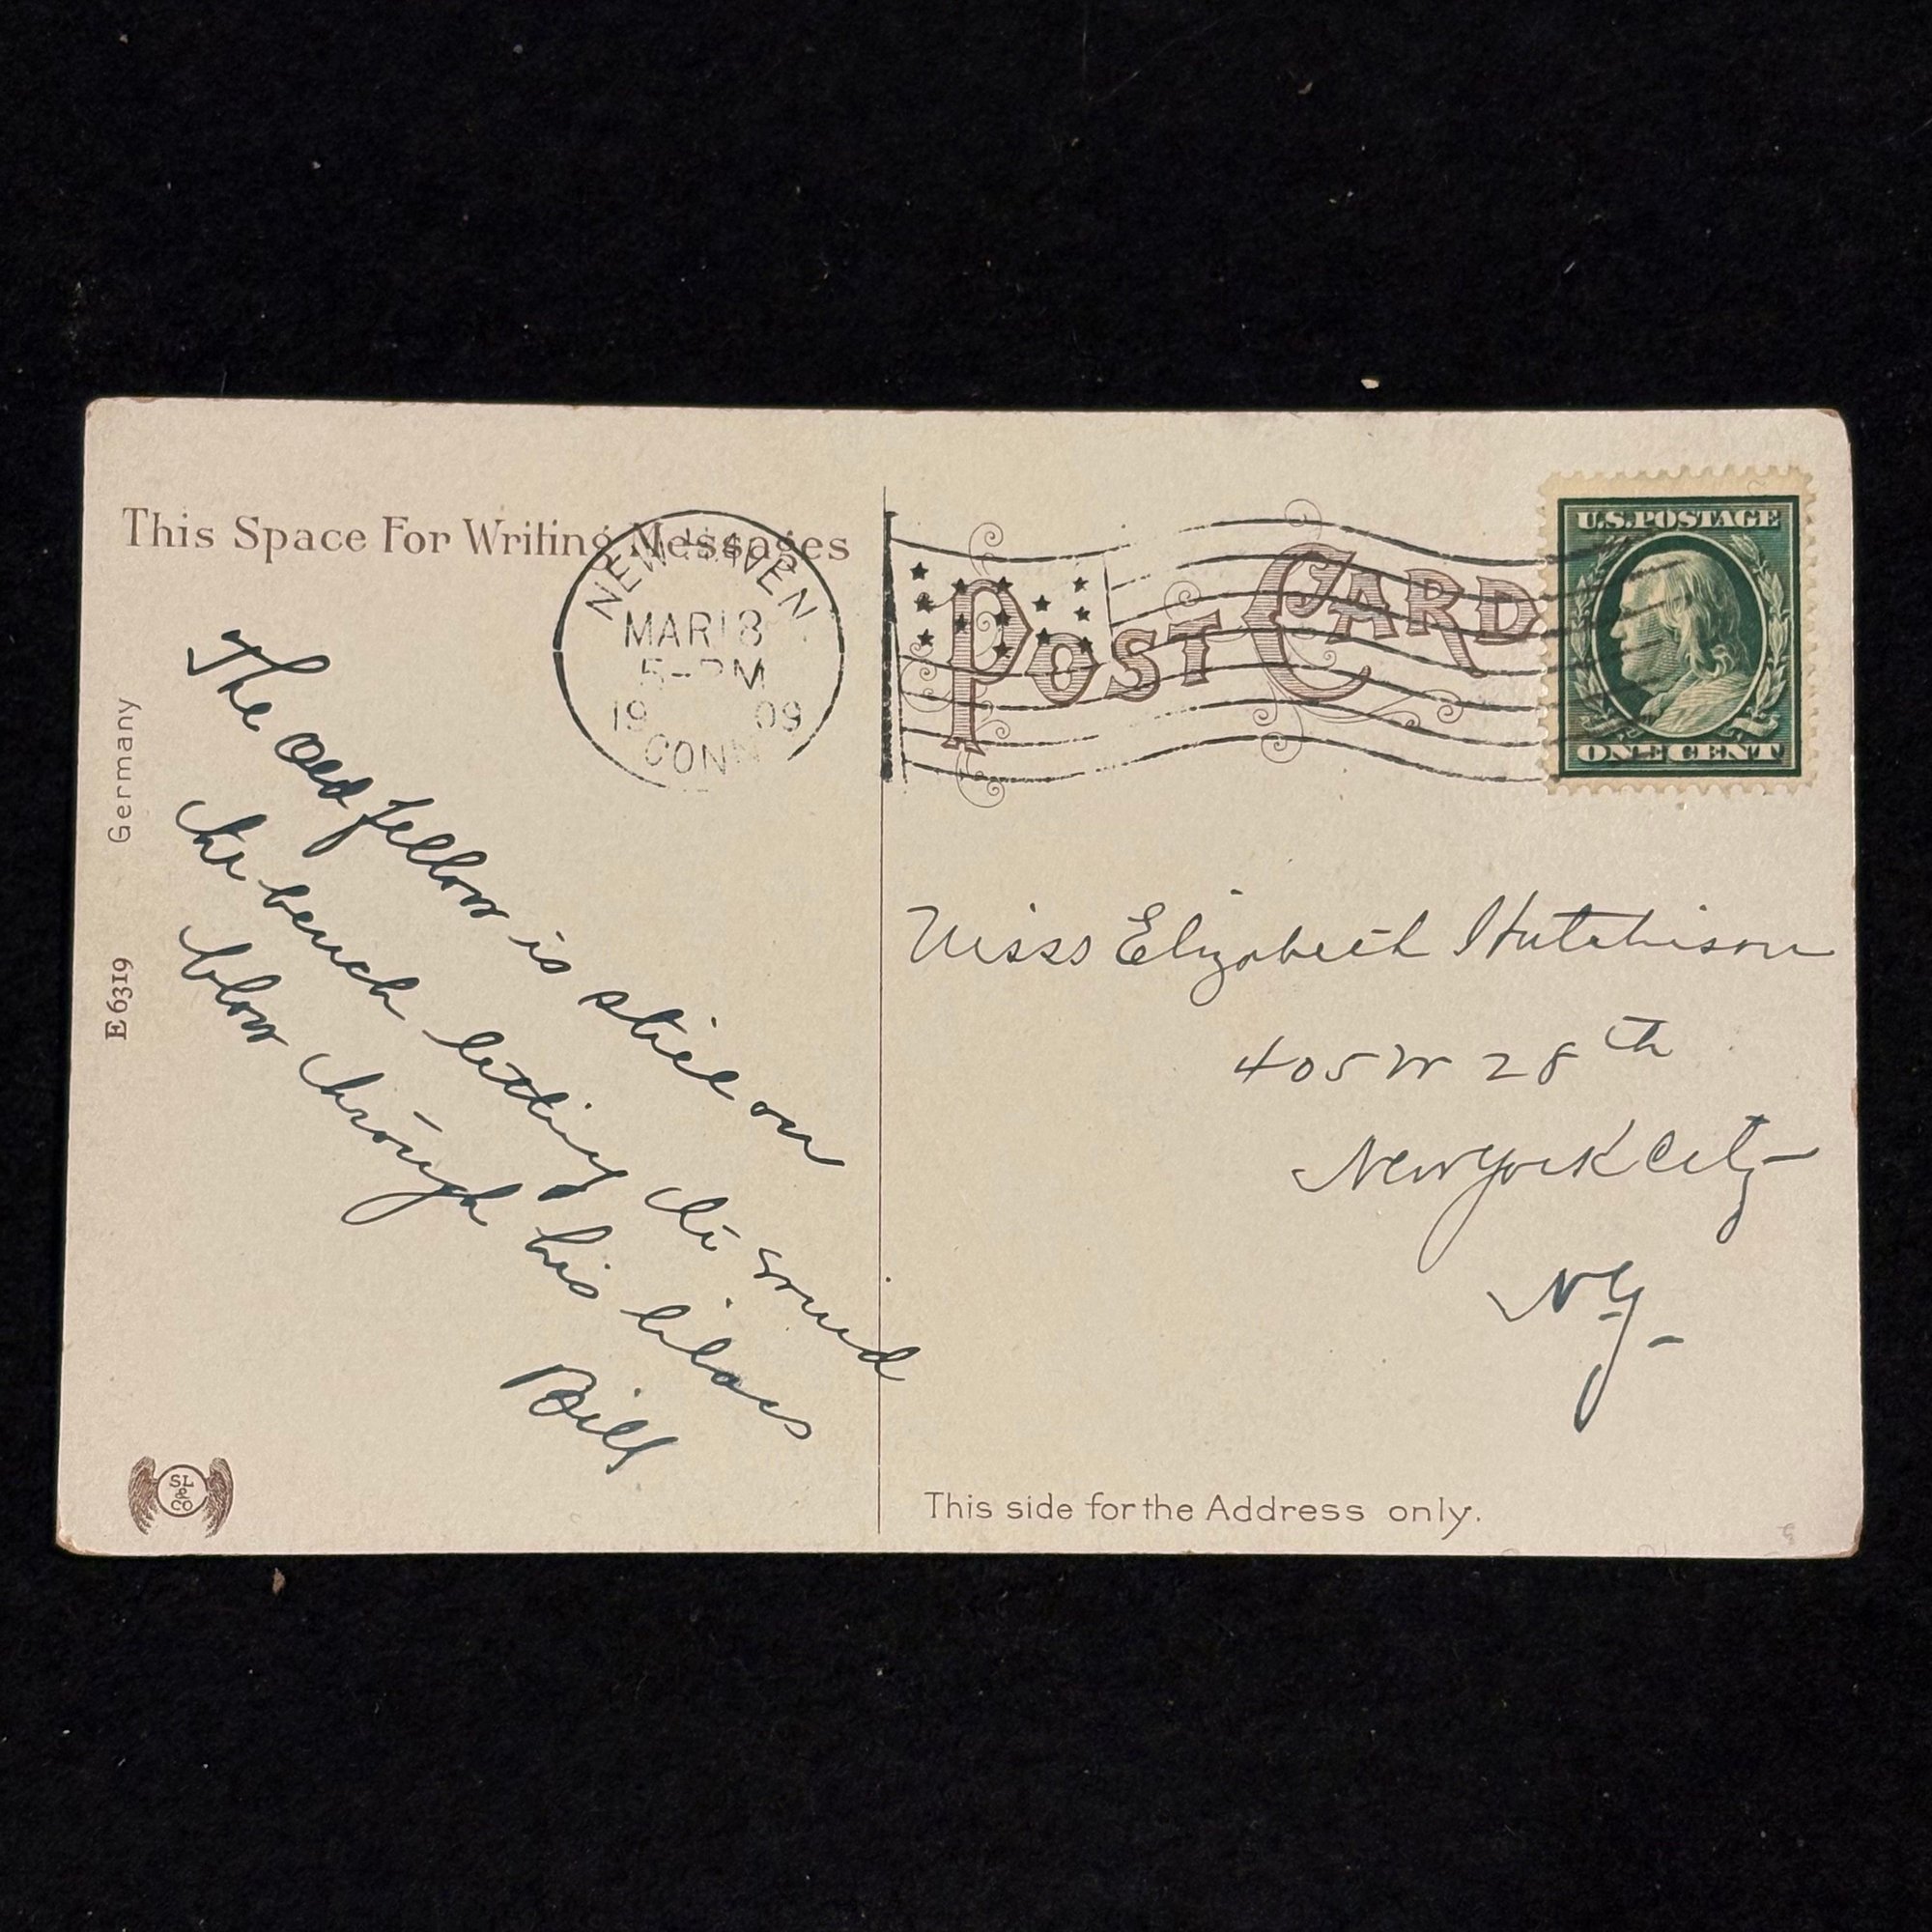 This Space For Writing Messages
NEW HAVEN
MAR 18
5-PM
1909
CONN
POST CARD
U.S. POSTAGE
ONE CENT
Germany
E 6319
The Old fellow is still on
the bench letting the wind
blow through his lilacs
Bill
Miss Elizabeth Hutchison
405 W 28th
New York City
N.Y.
SL & CO
This side for the Address only.